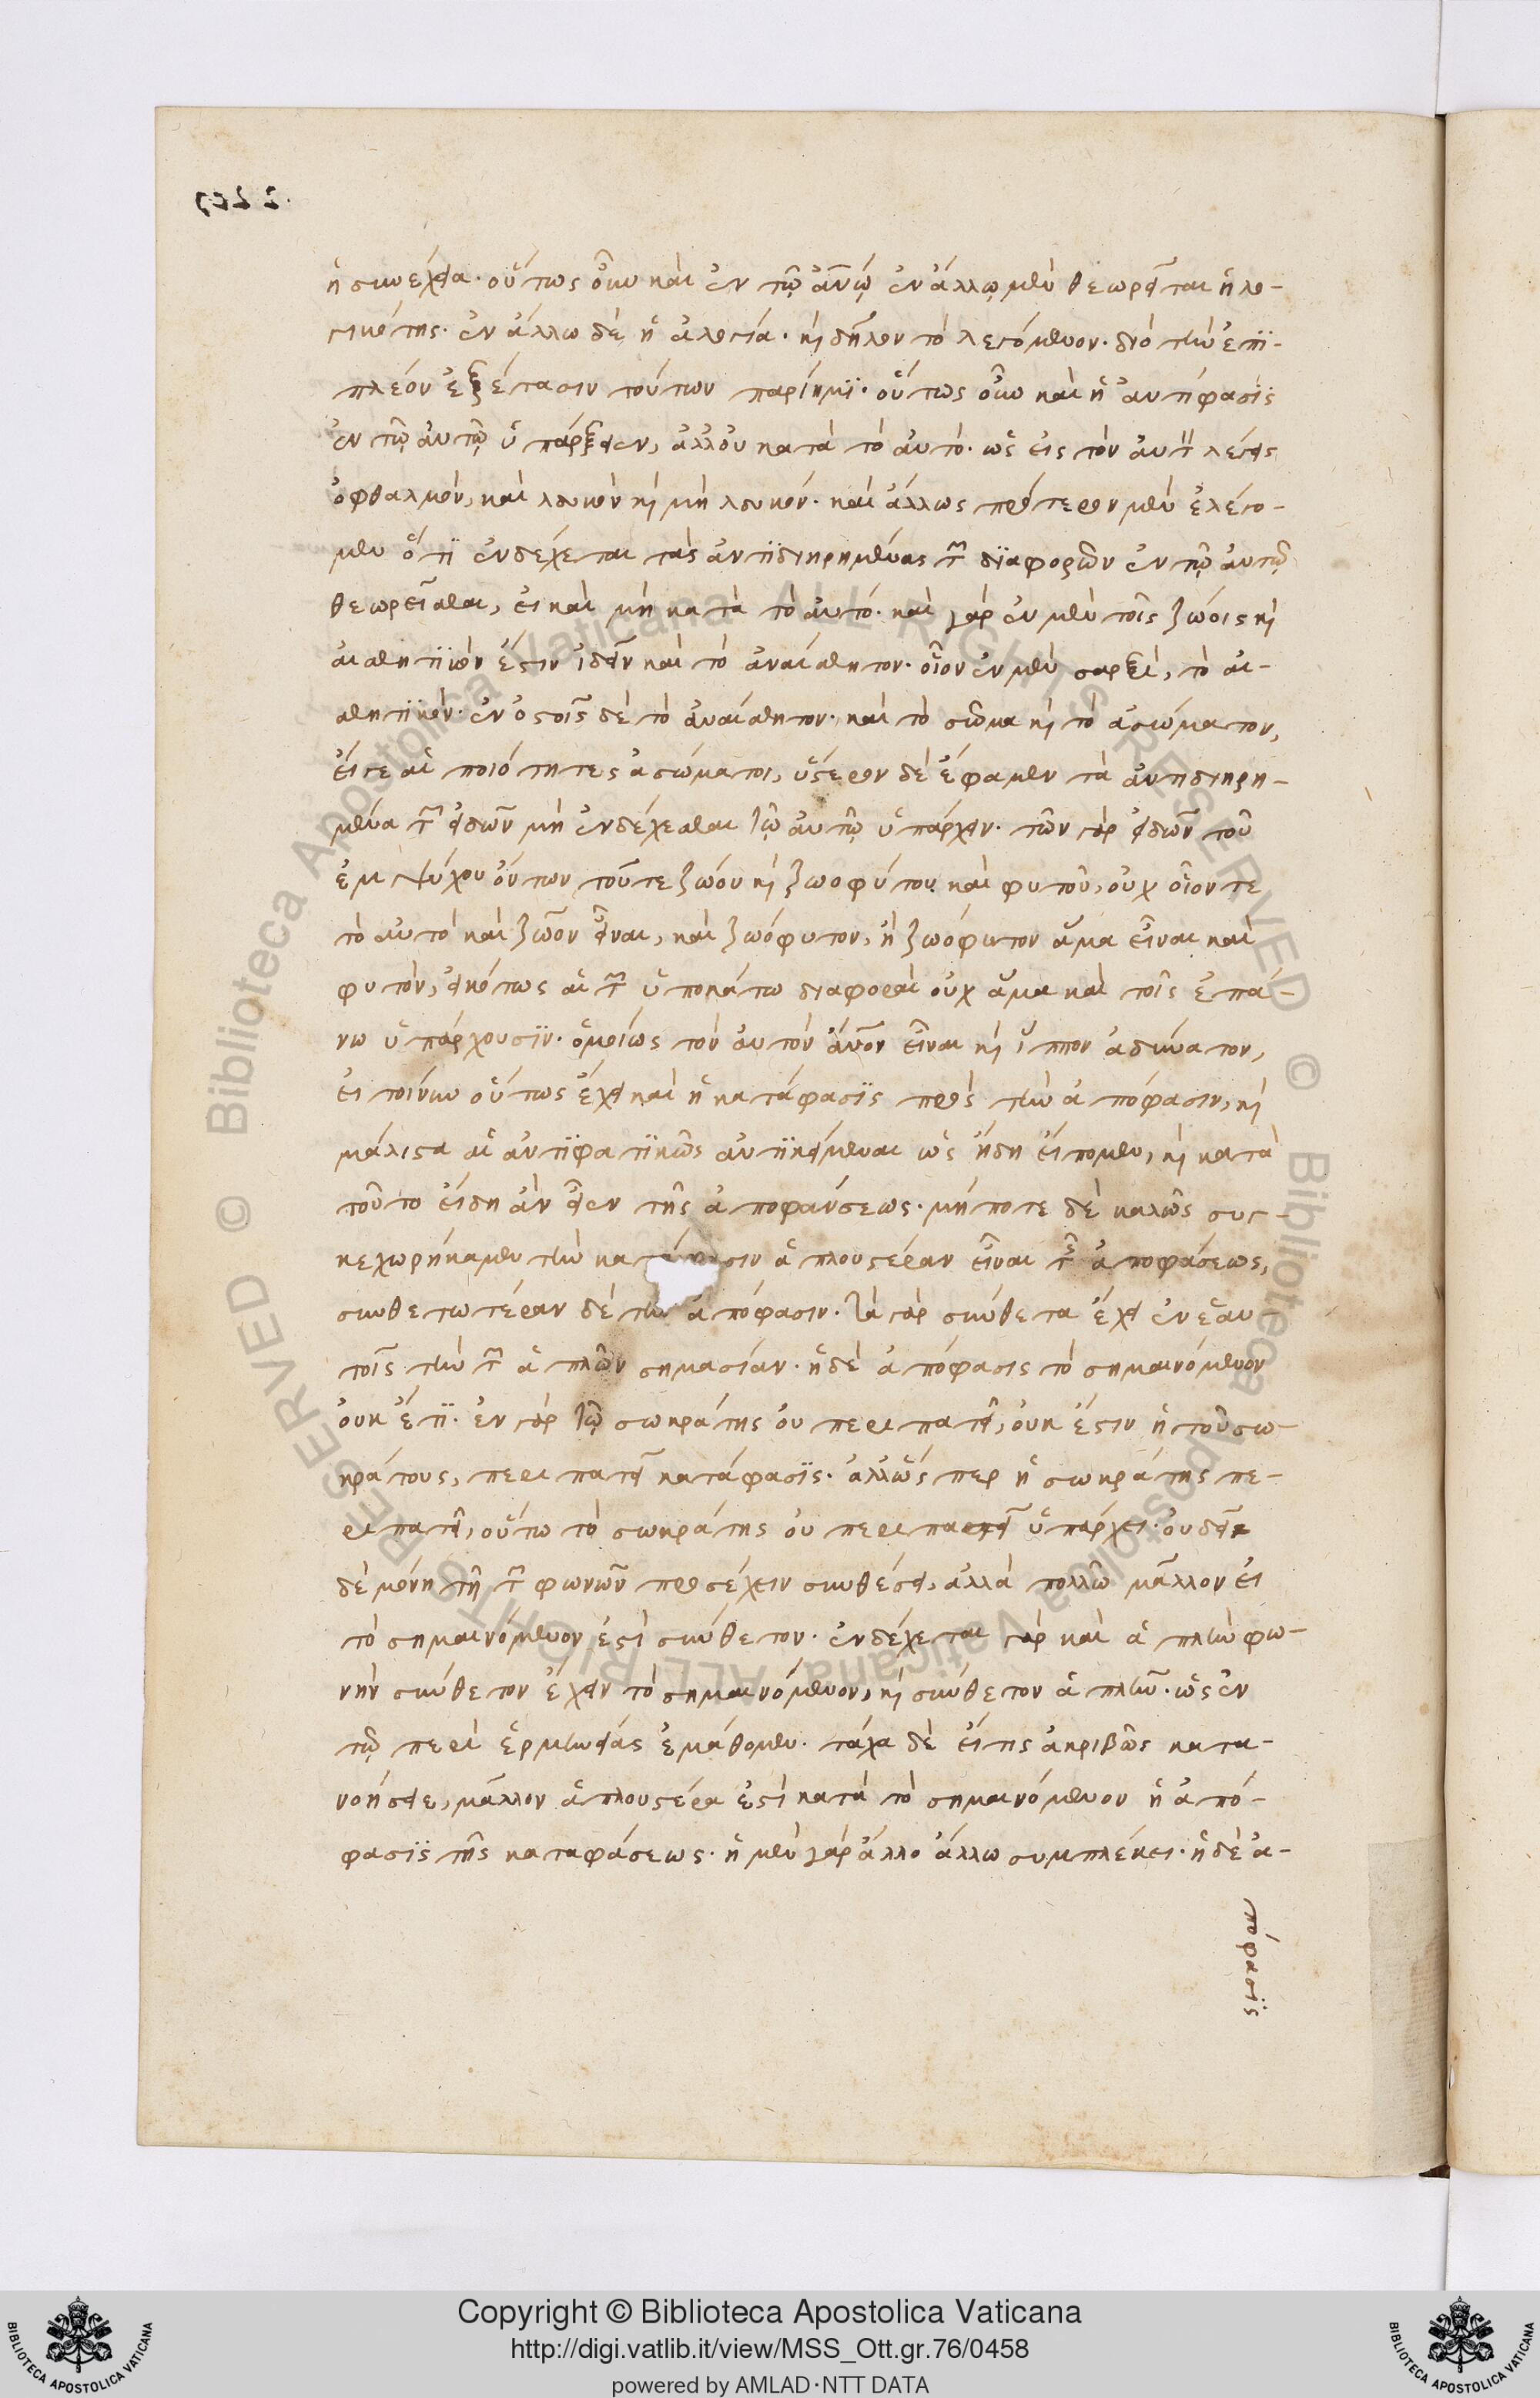 ἡ συνέχεια· οὕτως οὖν καὶ ἐν τῷ ἀνῳ ἐν ἄλλῳ μὲν θεωρεῖται ἡ λο-
γικότης· ἐν ἄλλω δὲ ἡ ἀλογία· καὶ δῆλον τὸ λεγόμενον· διὸ τὴν ἐπι-
πλέον ἐξέτασιν τούτων παρίημι· οὕτως οὖν καὶ ἡ ἀντίφασις
ἐν τῷ αὐτῷ ὑπάρξειεν, ἀλλ' οὐ κατὰ τὸ αὐτὸ· ὡς εἰς τὸν αὐτὸν λέγεις
ὀφθαλμὸν, καὶ λευκὸν καὶ μὴ λευκόν· καὶ ἄλλως πρότερον μὲν ἐλέγο-
μεν ὅτι ἐνδέχεται τὰς ἀντιδιηρημένας τῶν διαφορῶν ἐν τῷ αὐτῷ
θεωρεῖσθαι, εἰ καὶ μὴ κατὰ τὸ αὐτό· καὶ γὰρ ἐν μὲν τοῖς ζώοις καὶ
αἰσθητικὸν ἔστιν ἰδεῖν καὶ τὸ ἀναίσθητον· οἷον ἐν μὲν σαρξὶ, τὸ αἰ-
σθητικὸν· ἐν ὀστοῖς δὲ τὸ ἀναίσθητον· καὶ τὸ σῶμα καὶ τὸ ἀσώματον,
εἴγε αἱ ποιότητες ἀσώματοι, ὕστερον δὲ ἔφαμεν τὰ ἀντιδιηρη-
μένα τῶν εἰδῶν μὴ ἐνδέχεσθαι τῷ αὐτῷ ὑπάρχειν· τῶν γὰρ εἰδῶν τοῦ
ἐμψύχου ὄντων τοῦτε ζώου καὶ ζωοφύτου καὶ φυτοῦ, οὐχ οἷον τε
τὸ αὐτὸ καὶ ζῶον εἶναι, καὶ ζωόφυτον, ἢ ζωόφυτον ἅμα εἶναι καὶ
φυτὸν, εἰκότως αἱ τῶν ὑποκάτω διαφοραὶ οὐχ ἅμα καὶ τοῖς ἐπά-
νω ὑπάρχουσιν· ὁμοίως τὸν αὐτὸν ἄνον εἶναι καὶ ἵππον ἀδύνατον,
εἰ τοίνυν οὕτως ἔχει καὶ ἡ κατάφασις πρὸς τὴν ἀπόφασιν, καὶ
μάλιστα αἱ ἀντιφατικῶς ἀντικείμεναι ὡς ἤδη εἴπομεν, καὶ κατὰ
τοῦτο εἴδη ἂν εἶεν τῆς ἀποφάνσεως· μήποτε δὲ καλῶς συγ-
κεχωρήκαμεν τὴν κατάφασιν ἁπλουστέραν εἶναι τῆς ἀποφάσεως,
συνθετωτέραν δὲ τὴν ἀπόφασιν· τὰ γὰρ σύνθετα ἔχει ἐν ἑαυ
τοῖς τὴν τῶν ἁπλῶν σημασίαν· ἡ δὲ ἀπόφασις τὸ σημαινόμενον
οὐκ ἔτι· ἐν γὰρ τῷ σωκράτης οὐ περιπατεῖ, οὐκ ἔστιν ἡ τοῦ σω-
κράτους, περιπατεῖ κατάφασις· ἀλλ' ὥσπερ ἡ σωκράτης πε-
ριπατεῖ, οὕτω τὸ σωκράτης οὐ περιπατεῖ ὑπάρχει· οὐ δεῖ
δὲ μόνη τῇ τῶν φωνῶν προσέχειν συνθέσει, ἀλλὰ πολλῶ μᾶλλον εἰ
τὸ σημαινόμενον ἐστὶ σύνθετον· ἐνδέχεται γὰρ καὶ ἁπλὴν φω-
νὴν σύνθετον ἔχειν τὸ σημαινόμενον, καὶ σύνθετον ἁπλῆν· ὡς ἐν
τῷ περὶ ἑρμηνείας ἐμάθομεν· τάχα δὲ εἴ τις ἀκριβῶς κατα-
νοήσειε, μᾶλλον ἁπλουστέρα ἐστὶ κατὰ τὸ σημαινόμενον ἡ ἀπό-
φασις τῆς καταφάσεως· ἡ μὲν γὰρ ἄλλο ἄλλω συμπλέκει· ἡ δὲ ἀ-
πόφασις
Copyright © Biblioteca Apostolica Vaticana
http://digi.vatlib.it/view/MSS_Ott.gr.76/0458
powered by AMLAD·NTT DATA